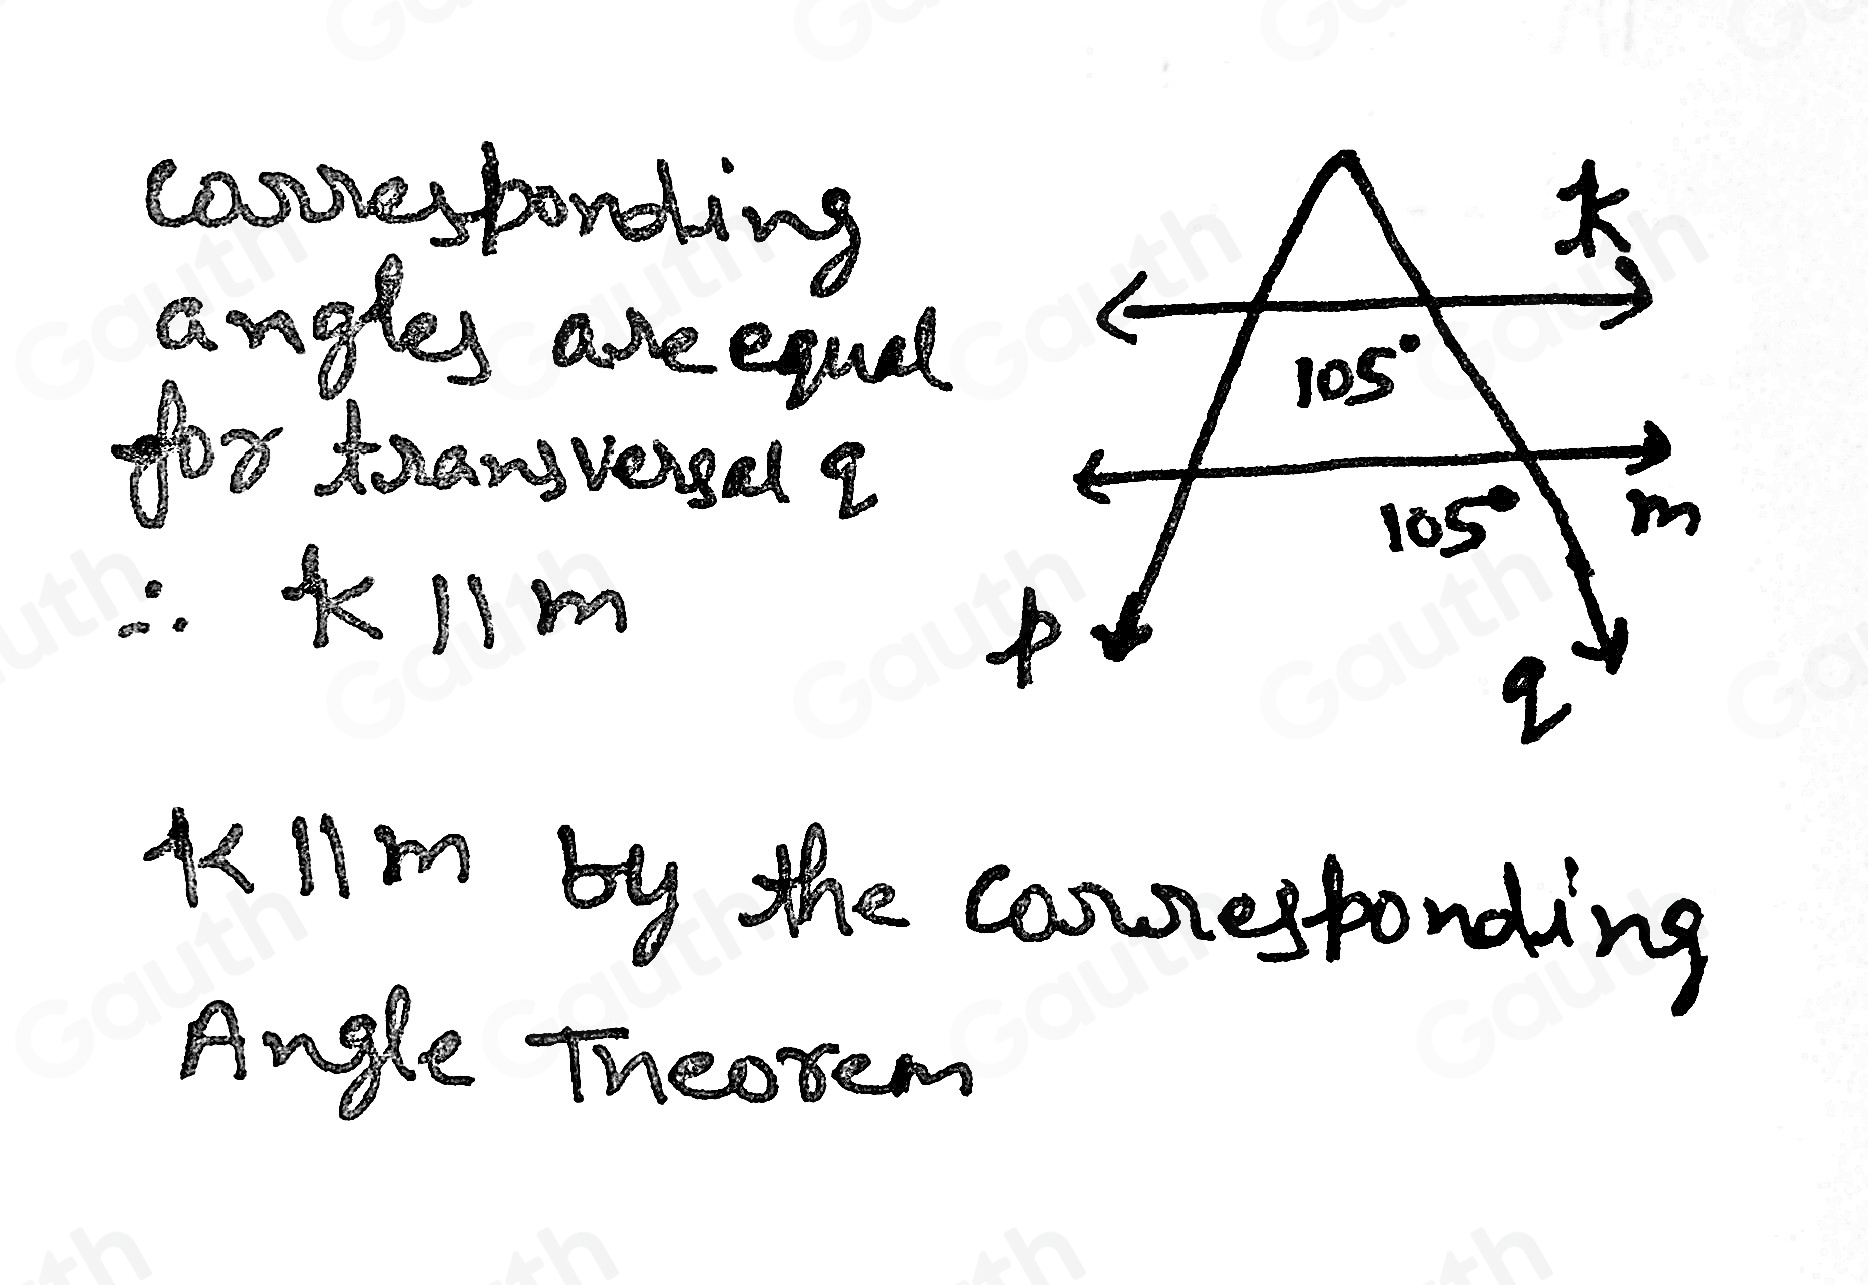 corresponding
angles are equal
for transversal q
∴ k || m
k
105°
105°
m
p
q
k || m by the corresponding
Angle Theorem